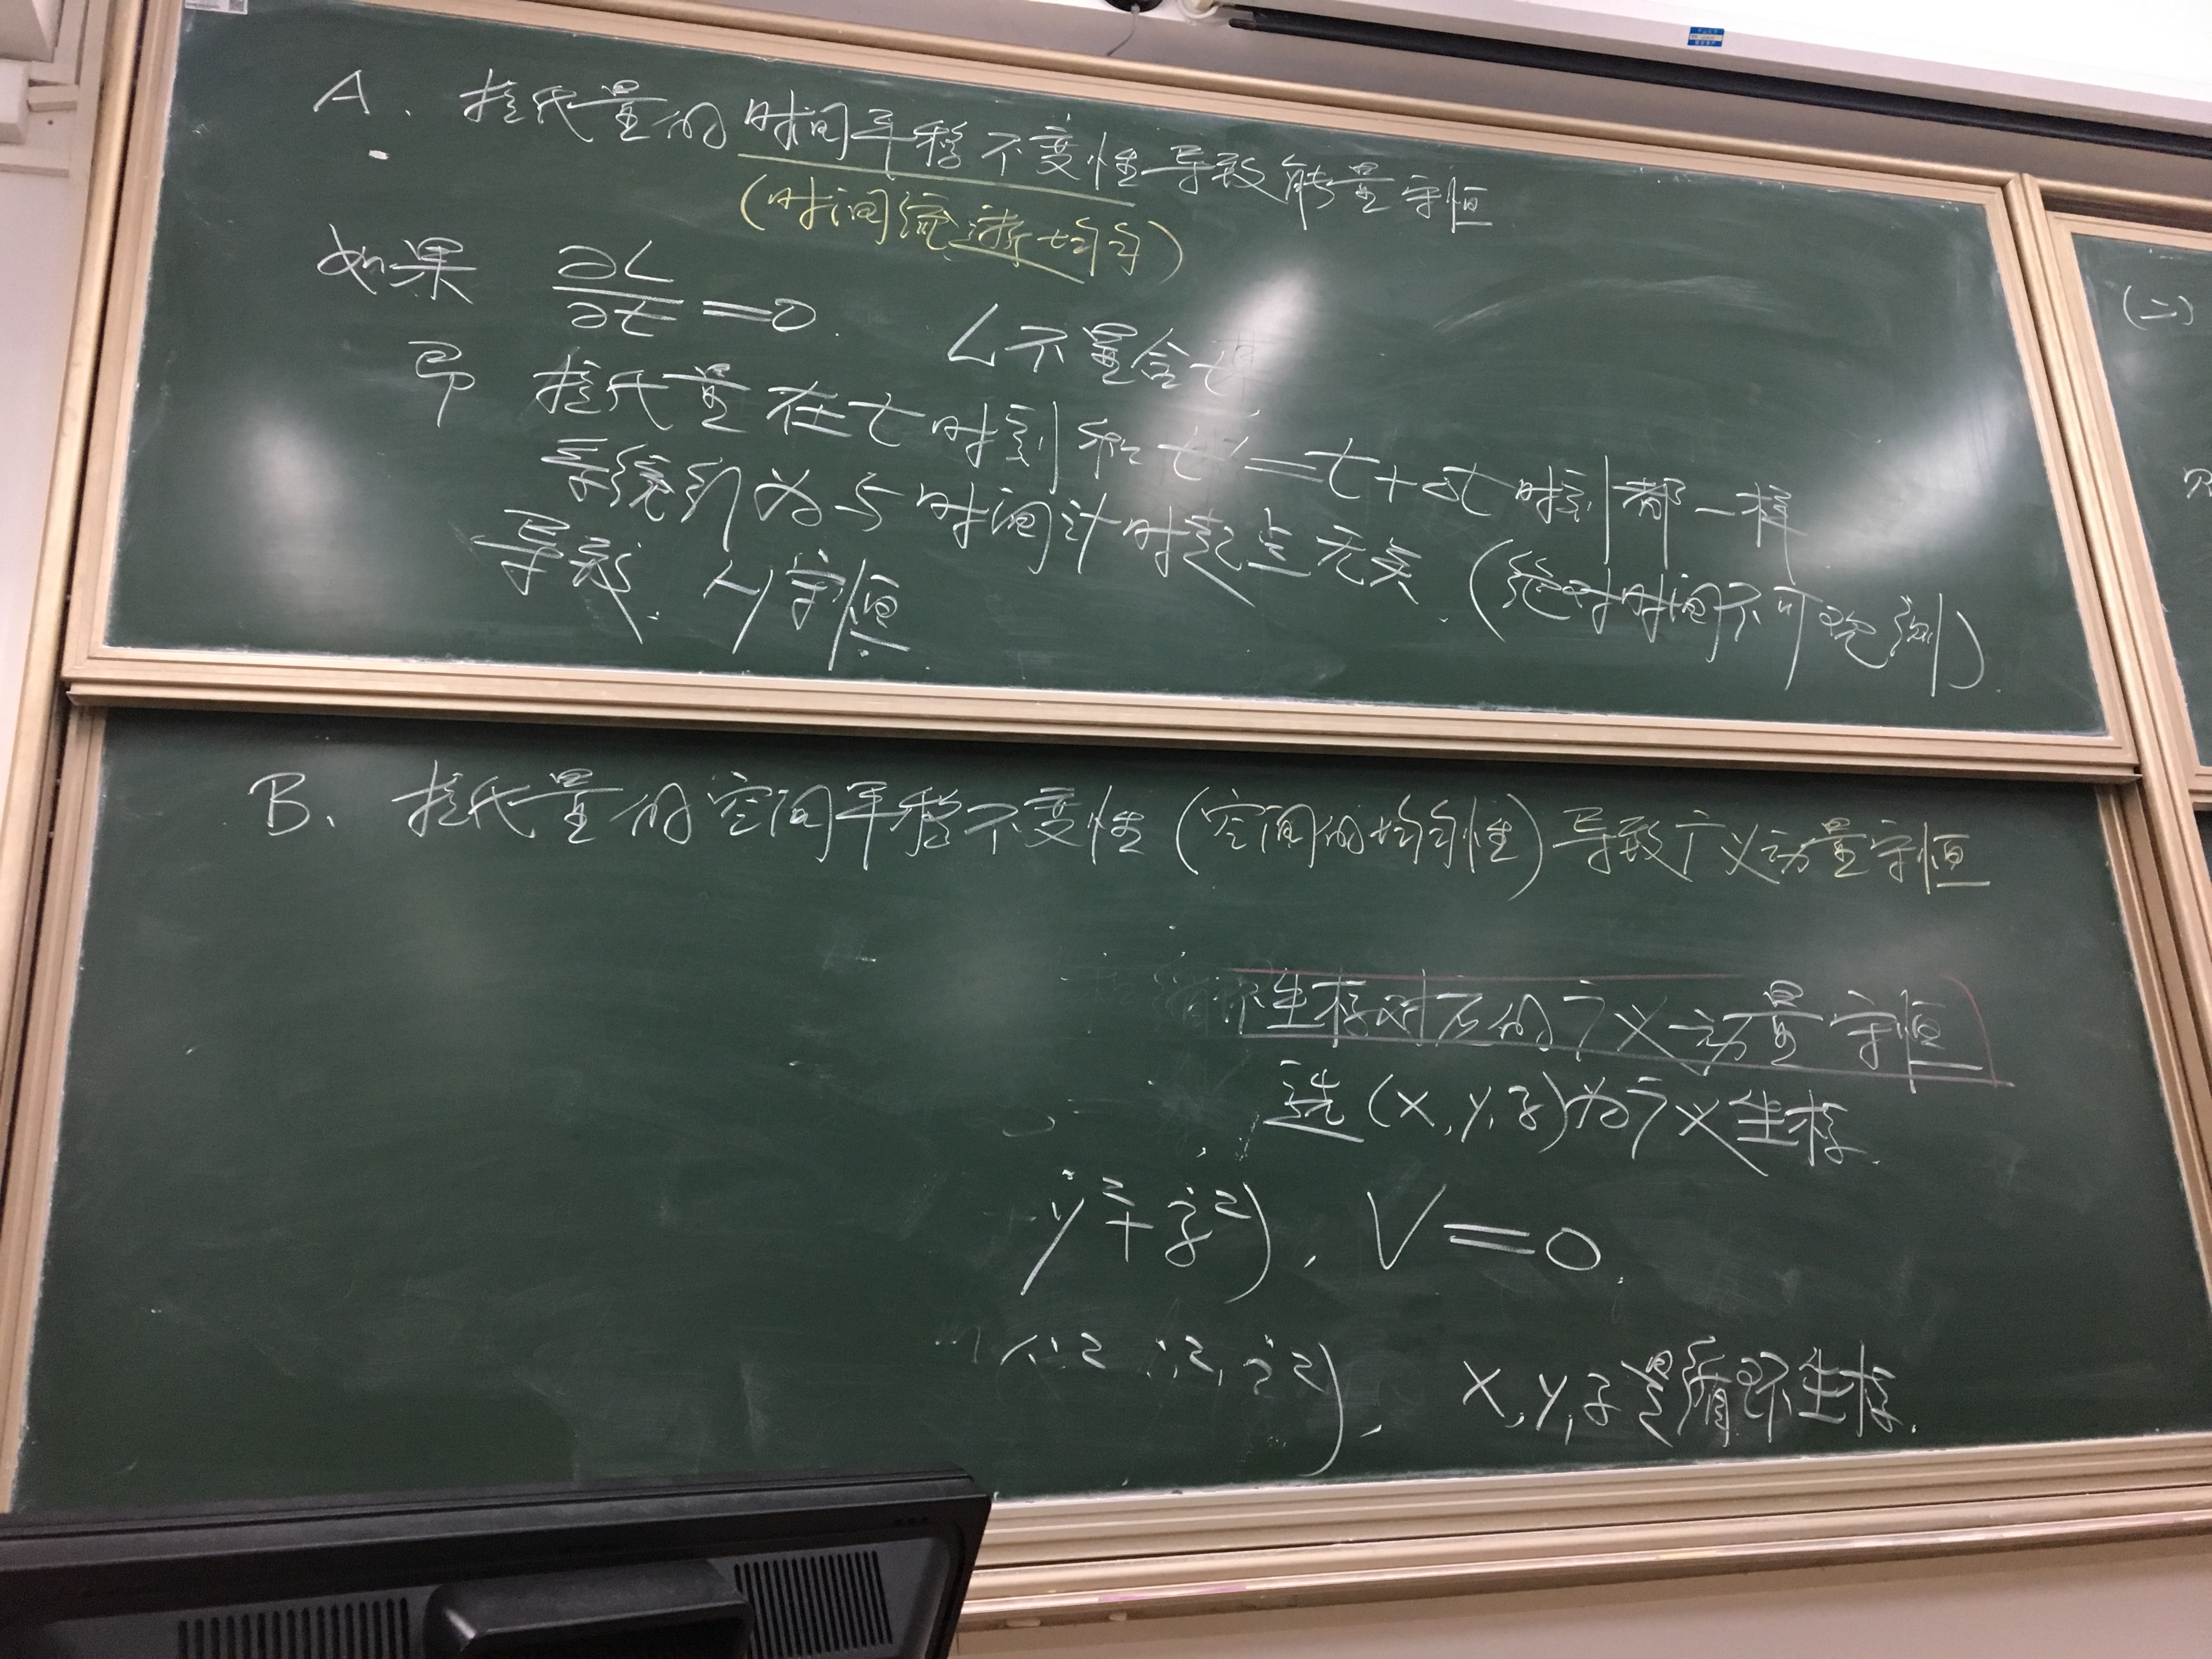 A. 拉氏量的时间平移不变性导致能量守恒
(时间流逝均匀)
如果 ∂L/∂t=0. L不显含t
即 拉氏量在t时刻和t'=t+Δt时刻都一样
系统行为与时间计时起点无关.(绝对时间不可观测)
导致. H守恒
(二)
B. 拉氏量的空间平移不变性(空间的均匀性)导致广义动量守恒
环坐标对应的广义动量守恒
选(x,y,z)为广义坐标.
ẏ²+ż²), V=0.
ż²), x,y,z是循环坐标.